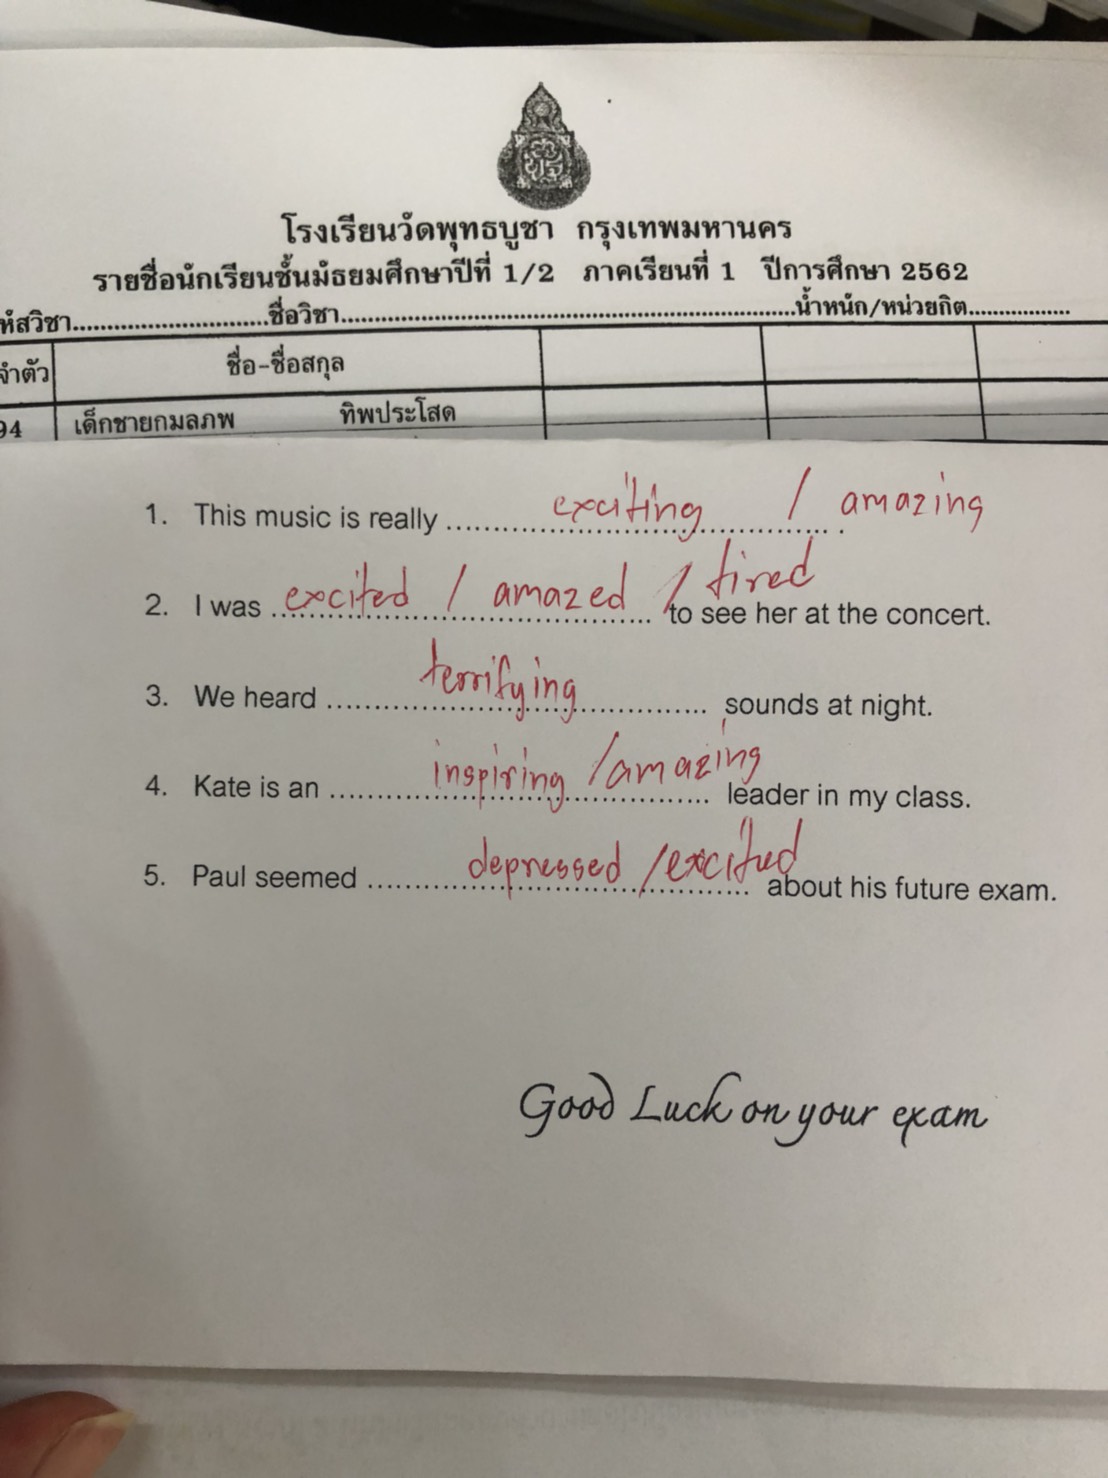 โรงเรียนวัดพุทธบูชา กรุงเทพมหานคร
รายชื่อนักเรียนชั้นมัธยมศึกษาปีที่ 1/2 ภาคเรียนที่ 1 ปีการศึกษา 2562
หัสวิชา............................ชื่อวิชา......................................................................น้ำหนัก/หน่วยกิต................
จำตัว ชื่อ-ชื่อสกุล
94 เด็กชายกมลภพ ทิพประโสด
1. This music is really exciting / amazing .
2. I was excited / amazed / tired to see her at the concert.
3. We heard terrifying sounds at night.
4. Kate is an inspiring / amazing leader in my class.
5. Paul seemed depressed / excited about his future exam.
Good Luck on your exam